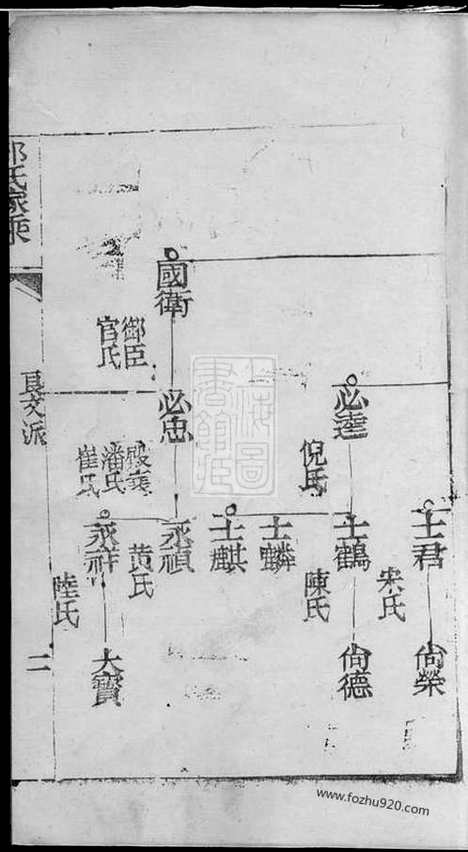 士君
宋氏
尚榮
必逵
倪氏
士鶴
陳氏
尚德
士麟
士麒
國衛
御臣
官氏
必忠
潘氏
崔氏
永禎
黄氏
永祥
陸氏
大寶
氏家乘
派
二
上海圖書館藏
www.fozhu920.com